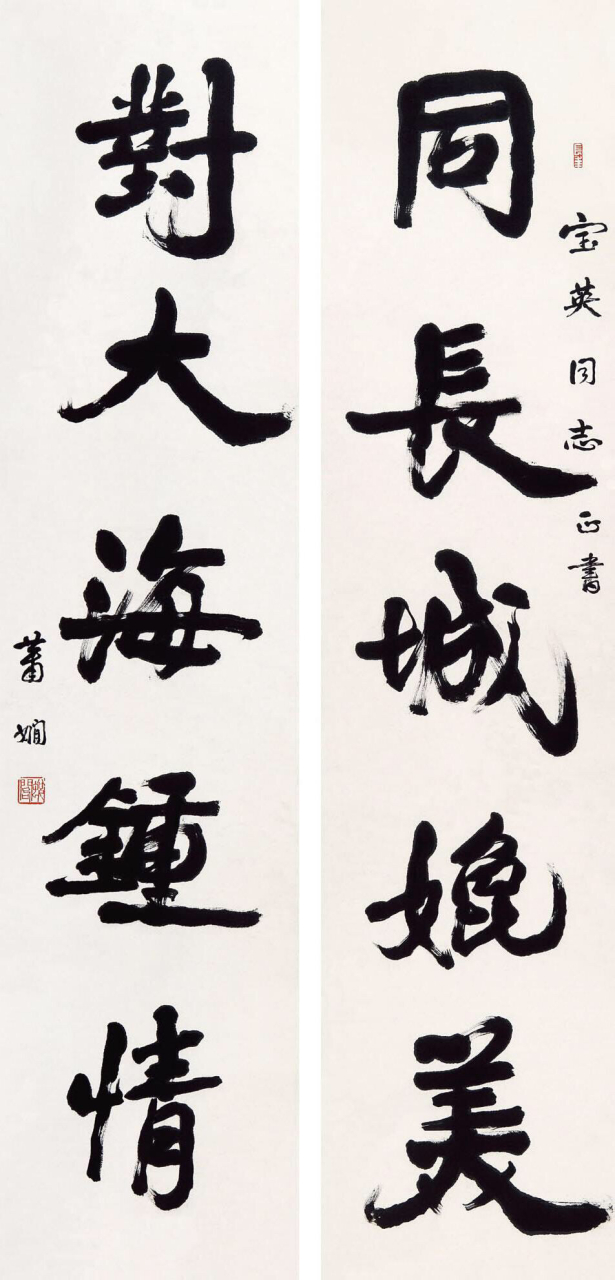 宝英同志正書
同長城娩美
對大海鍾情
蕭嫻